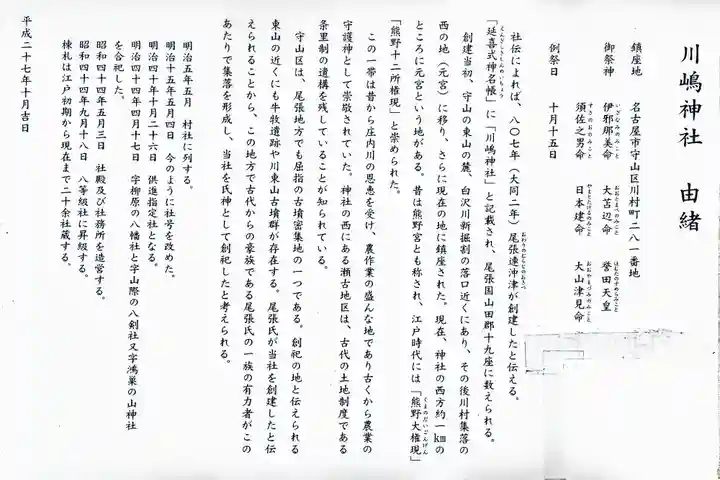 川嶋神社　由緒
鎮座地　名古屋市守山区川村町二八一番地
御祭神　伊邪那美命　大苫辺命　誉田天皇
須佐之男命　日本建命　大山津見命
例祭日　十月十五日
社伝によれば、八〇七年（大同二年）尾張連沖津が創建したと伝える。
「延喜式神名帳」に「川嶋神社」と記載され、尾張国山田郡十九座に数えられる。
創建当初、守山の東山の麓、白沢川新掘割の落口近くにあり、その後川村集落の
西の地（元宮）に移り、さらに現在の地に鎮座された。現在、神社の西方約一㎞の
ところに元宮という地がある。昔は熊野宮とも称され、江戸時代には「熊野大権現」
「熊野十二所権現」と崇められた。
この一帯は昔から庄内川の恩恵を受け、農作業の盛んな地であり古くから農業の
守護神として崇敬されていた。神社の西にある瀬古地区は、古代の土地制度である
条里制の遺構を残していることが知られている。
守山区は、尾張地方でも屈指の古墳密集地の一つである。創祀の地と伝えられる
東山の近くにも牛牧遺跡や川東山古墳群が存在する。尾張氏が当社を創建したと伝
えられることから、この地方で古代からの豪族である尾張氏の一族の有力者がこの
あたりで集落を形成し、当社を氏神として創祀したと考られる。
明治五年五月　村社に列する。
明治十五年五月四日　今のように社号を改めた。
明治四十年十月二十六日　供進指定社となる。
明治四十四年四月十七日　字柳原の八幡社と字山際の八剣社又字鴻巣の山神社
を合祀した。
昭和四十四年五月三日　社殿及び社務所を造営する。
昭和四十四年九月十八日　八等級社に昇級する。
棟札は江戸初期から現在まで二十余社蔵する。
平成二十七年十月吉日